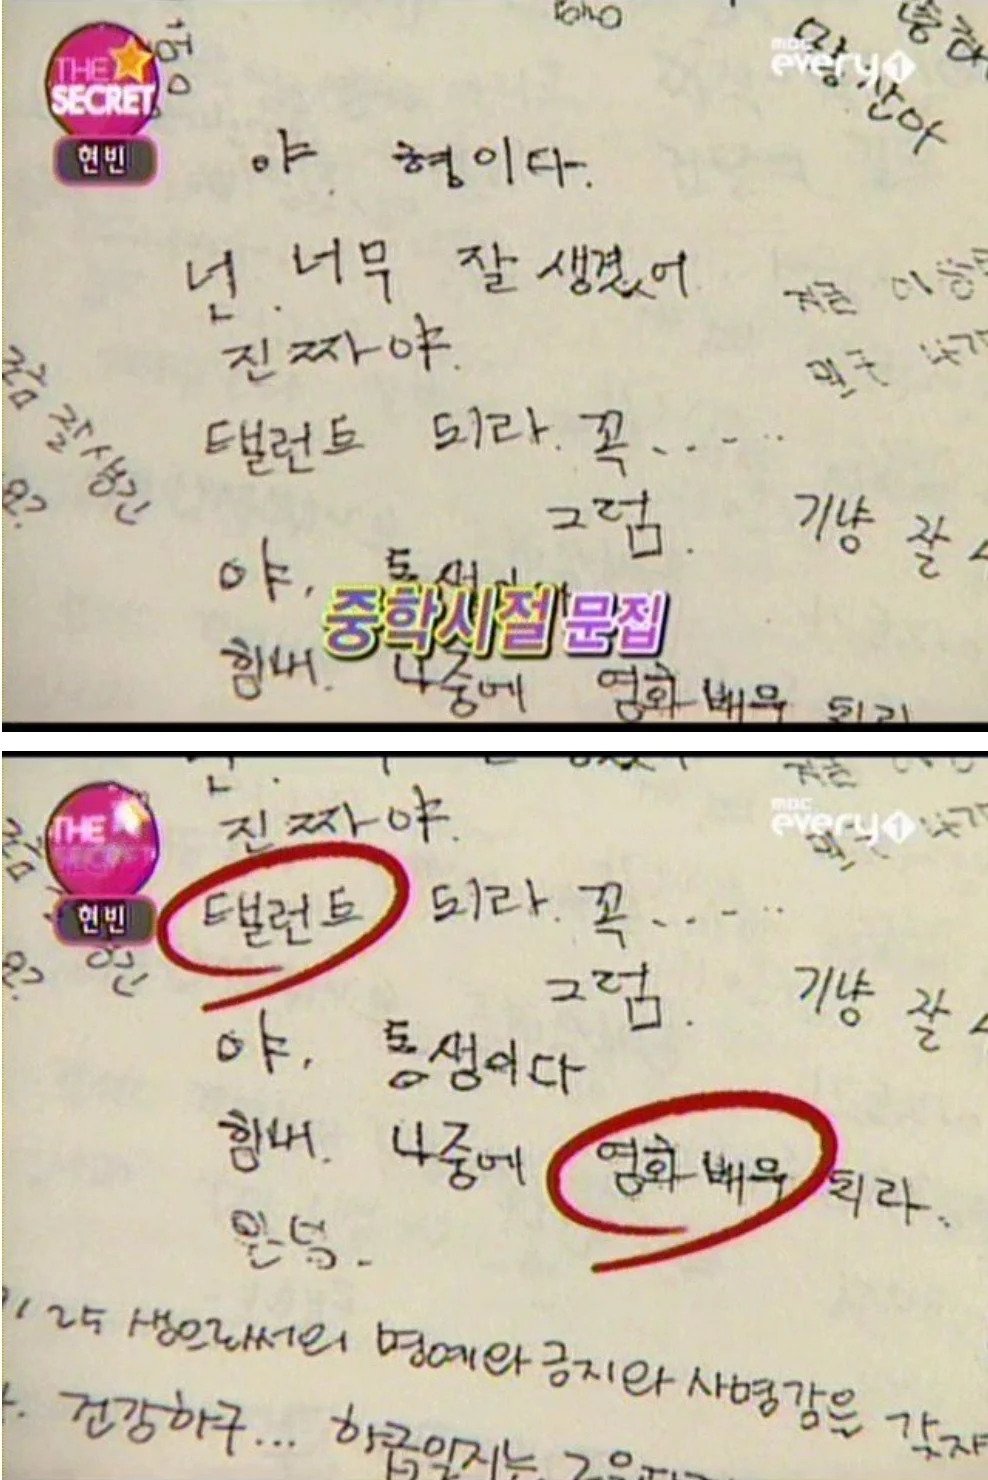 THE
SECRET
현빈
mbc
every1
야. 형이다.
넌 너무 잘 생겼어
진짜야.
탤런트 되라. 꼭.....
그럼. 기냥 잘
잘생긴
요?
야.
중학시절 문집
힘내. 나중에 영화배우 되라
THE
SECRET
현빈
mbc
every1
진짜야.
탤런트 되라. 꼭.....
요?
그럼. 기냥 잘
야. 동생이다
힘내. 나중에 영화배우 되라..
안녕.
생으로써의 명예와 긍지와 사명감을 갖자
건강하구... 학급일지는